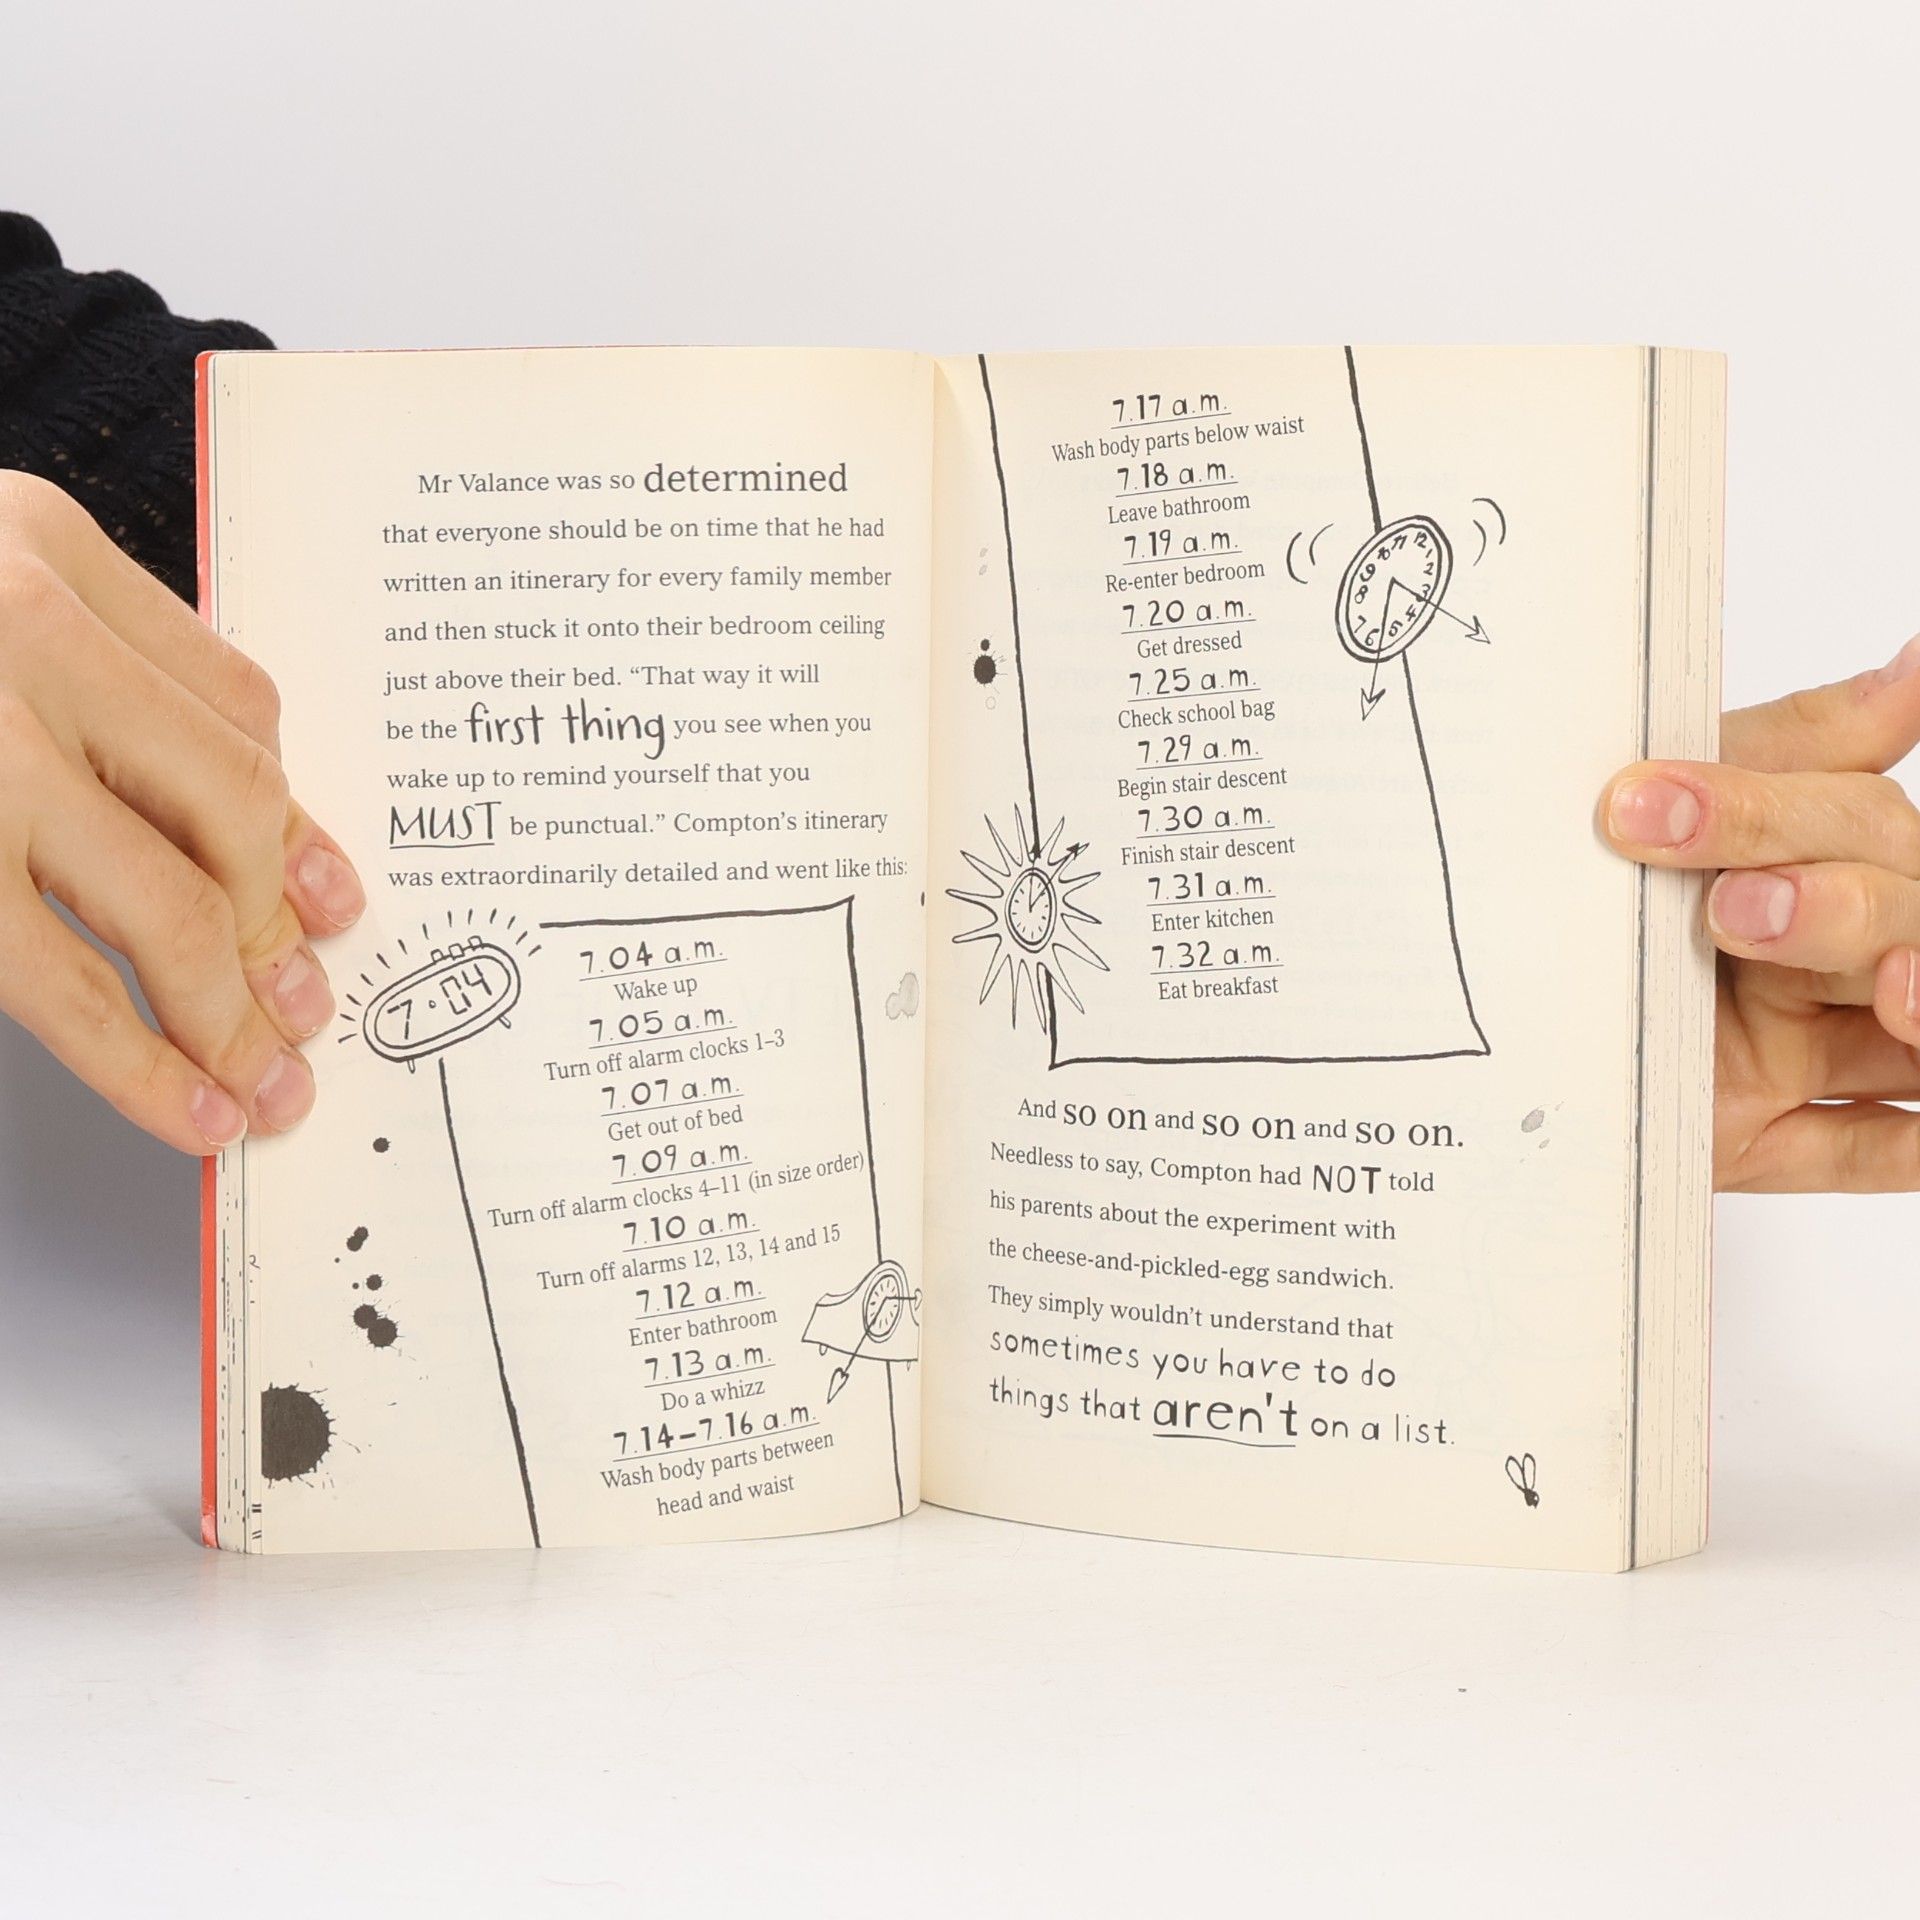 Mr Valance was so determined
that everyone should be on time that he had
written an itinerary for every family member
and then stuck it onto their bedroom ceiling
just above their bed. “That way it will
be the first thing you see when you
wake up to remind yourself that you
MUST be punctual.” Compton’s itinerary
was extraordinarily detailed and went like this:
7:04
7.04 a.m.
Wake up
7.05 a.m.
Turn off alarm clocks 1–3
7.07 a.m.
Get out of bed
7.09 a.m.
Turn off alarm clocks 4–11 (in size order)
7.10 a.m.
Turn off alarms 12, 13, 14 and 15
7.12 a.m.
Enter bathroom
7.13 a.m.
Do a whizz
7.14–7.16 a.m.
Wash body parts between
head and waist
7.17 a.m.
Wash body parts below waist
7.18 a.m.
Leave bathroom
7.19 a.m.
Re-enter bedroom
7.20 a.m.
Get dressed
7.25 a.m.
Check school bag
7.29 a.m.
Begin stair descent
7.30 a.m.
Finish stair descent
7.31 a.m.
Enter kitchen
7.32 a.m.
Eat breakfast
12 1 2 3 4 5 6 7 8 9 10 11
And so on and so on and so on.
Needless to say, Compton had NOT told
his parents about the experiment with
the cheese-and-pickled-egg sandwich.
They simply wouldn’t understand that
sometimes you have to do
things that aren't on a list.